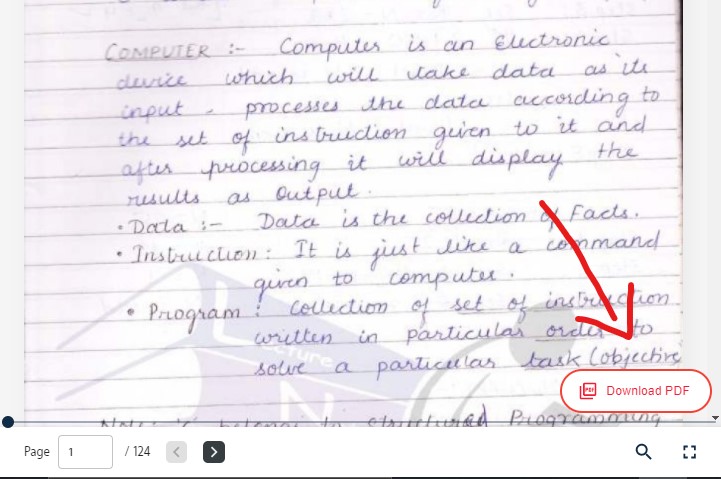 COMPUTER :- Computer is an Electronic
device which will take data as its
input - processes the data according to
the set of instruction given to it and
after processing it will display the
results as Output.
• Data :- Data is the collection of Facts.
• Instruction : It is just like a command
given to computer.
• Program : Collection of set of instruction
written in particular order to
solve a particular task (objective
Lecture
N
Download PDF
Note: 'C' belongs to structured Programming
Page 1 / 124